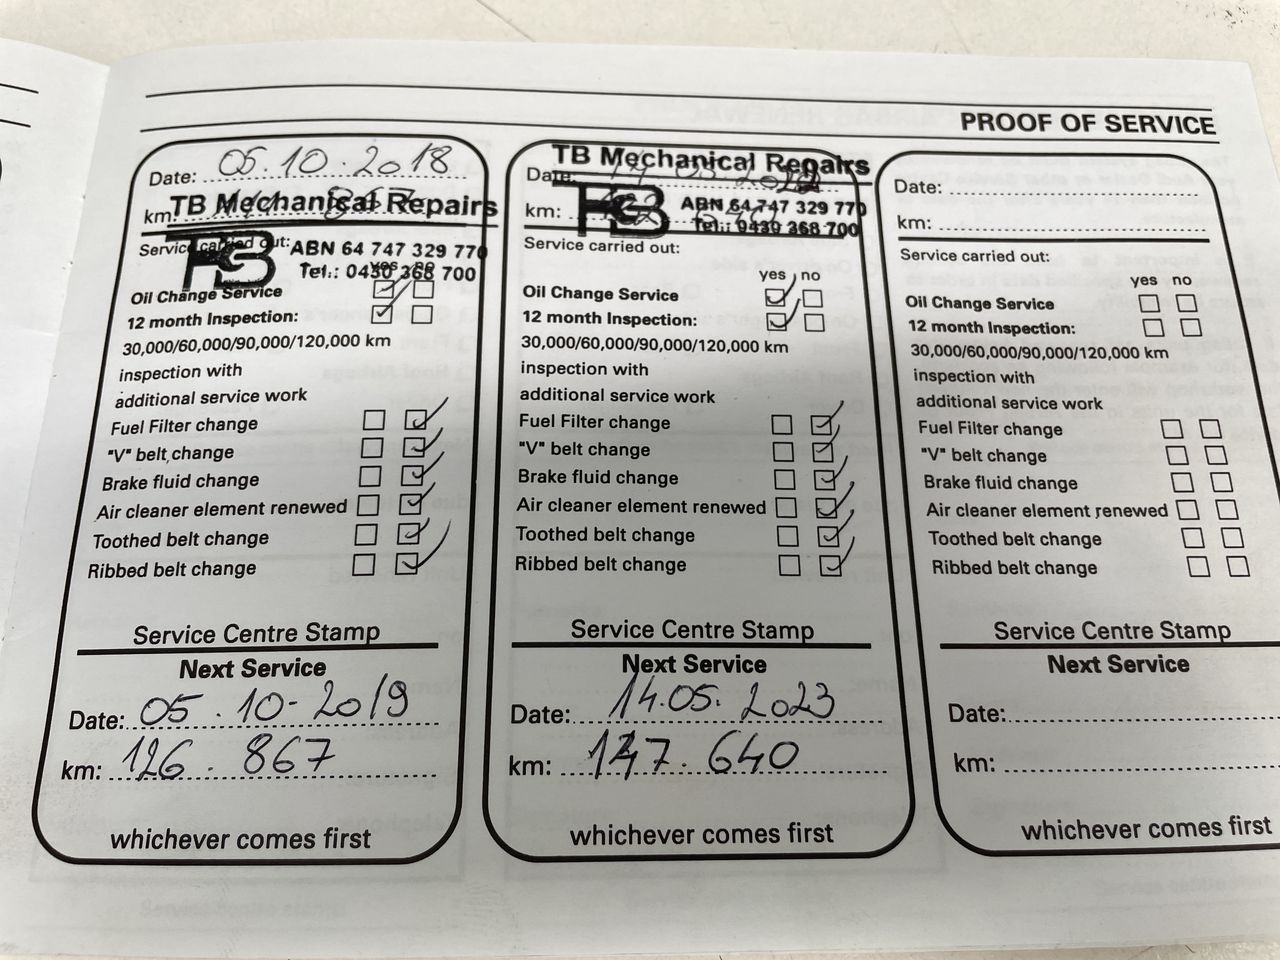 PROOF OF SERVICE
Date: 05.10.2018
TB Mechanical Repairs
km: 867
Service carried out:
ABN 64 747 329 770
Tel.: 0430 368 700
yes no
Oil Change Service
12 month Inspection:
30,000/60,000/90,000/120,000 km
inspection with
additional service work
Fuel Filter change
"V" belt change
Brake fluid change
Air cleaner element renewed
Toothed belt change
Ribbed belt change
Service Centre Stamp
Next Service
Date: 05.10-2019
km: 126.867
whichever comes first
TB Mechanical Repairs
Date:
ABN 64 747 329 770
km:
Tel.: 0430 368 700
Service carried out:
yes no
Oil Change Service
12 month Inspection:
30,000/60,000/90,000/120,000 km
inspection with
additional service work
Fuel Filter change
"V" belt change
Brake fluid change
Air cleaner element renewed
Toothed belt change
Ribbed belt change
Service Centre Stamp
Next Service
Date: 14.05.2023
km: 147.640
whichever comes first
Date:
km:
Service carried out:
yes no
Oil Change Service
12 month Inspection:
30,000/60,000/90,000/120,000 km
inspection with
additional service work
Fuel Filter change
"V" belt change
Brake fluid change
Air cleaner element renewed
Toothed belt change
Ribbed belt change
Service Centre Stamp
Next Service
Date:
km:
whichever comes first